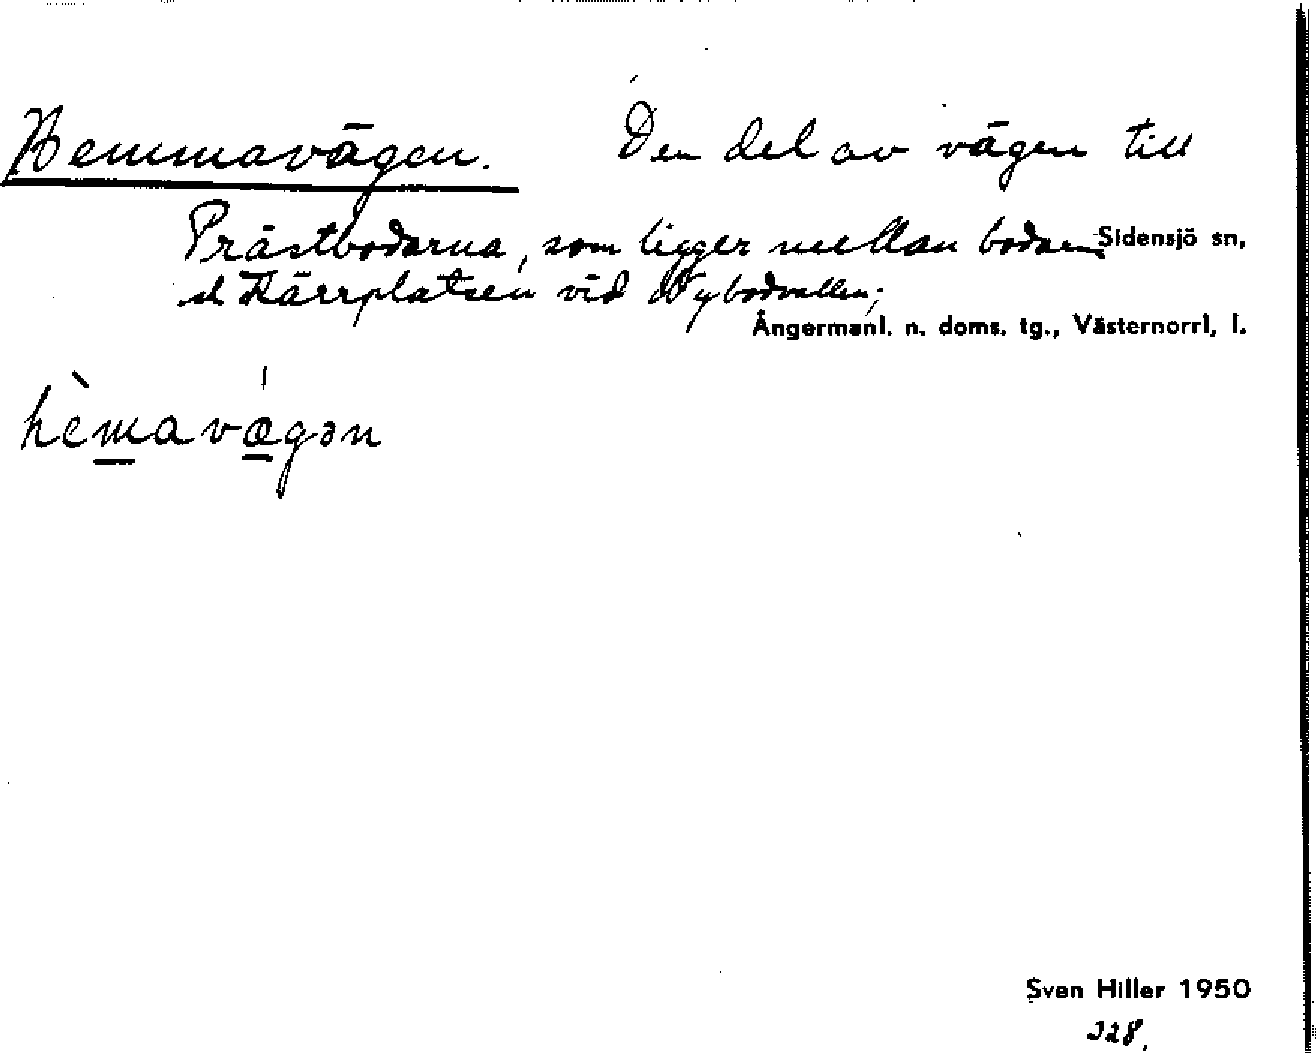 Hemmavägen. Den del av vägen till
Prästbodarna, som ligger mellan bodarna Sidensjö sn,
Kärrplatsen vid Nybodvallen;
Ångermanl. n. doms. tg., Västernorrl, l.
hèmavägən
Sven Hiller 1950
328.